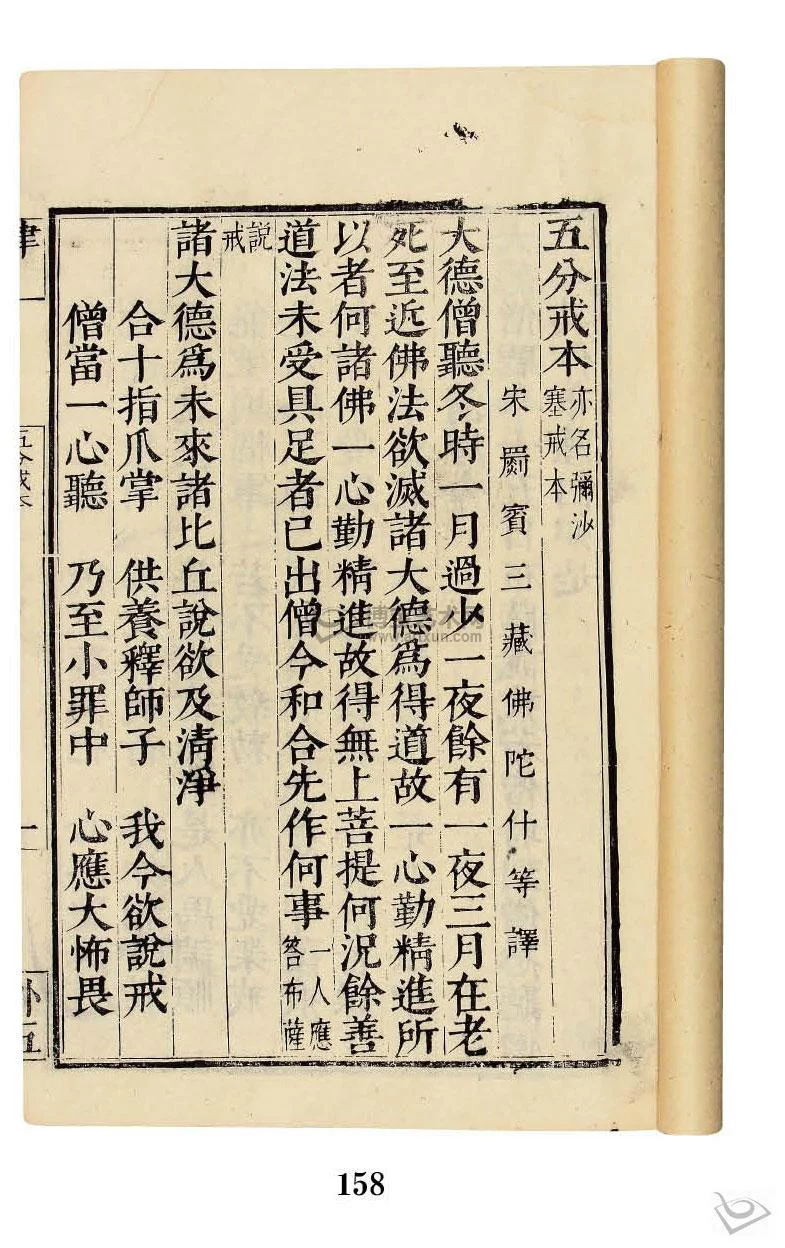 五分戒本亦名彌沙
塞戒本
宋罽賓三藏佛陀什等譯
大德僧聽冬時一月過少一夜餘有一夜三月在老
死至近佛法欲滅諸大德爲得道故一心勤精進所
以者何諸佛一心勤精進故得無上菩提何況餘善
道法未受具足者已出僧今和合先作何事一人應
答布薩
說
戒
諸大德爲未來諸比丘說欲及清淨
合十指爪掌 供養釋師子 我今欲說戒
僧當一心聽 乃至小罪中 心應大怖畏
五分戒本
一
158